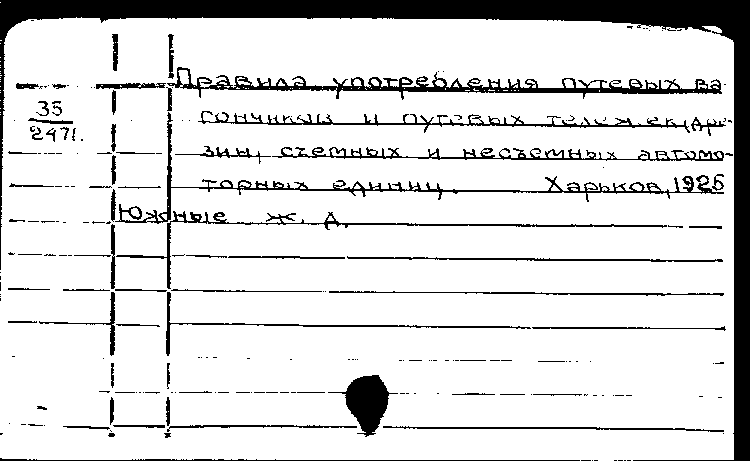 Правила употребления путевых ва-
35
2471.
гончиков и путевых тележек, (дре-
зин, съемных и несъемных автомо-
торных единиц. Харьков, 1925
Южные ж. д.